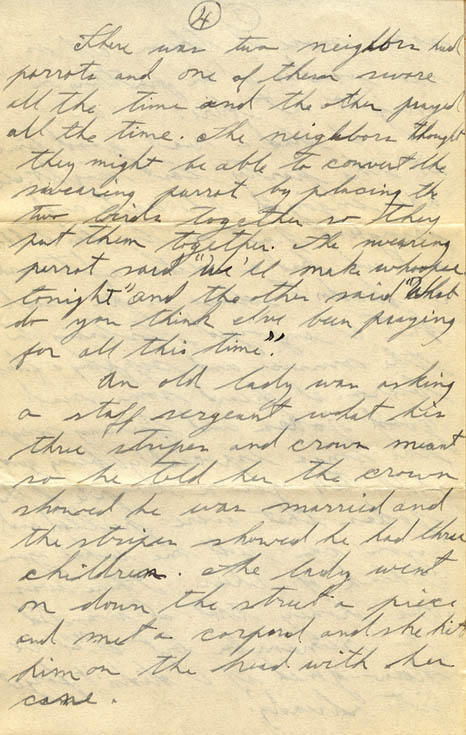 4
There was two neighbors had
parrots and one of them swore
all the time and the other prayed
all the time. The neighbors thought
they might be able to convert the
swearing parrot by placing the
two birds together so they
put them together. The swearing
parrot said "We'll make whoopee
tonight" and the other said "What
do you think I've been praying
for all this time".
An old lady was asking
a staff sergeant what his
three stripes and crown meant
so he told her the crown
showed he was married and
the stripes showed he had three
children. The lady went
on down the street a piece
and met a corporal and she hit
him on the head with her
cane.